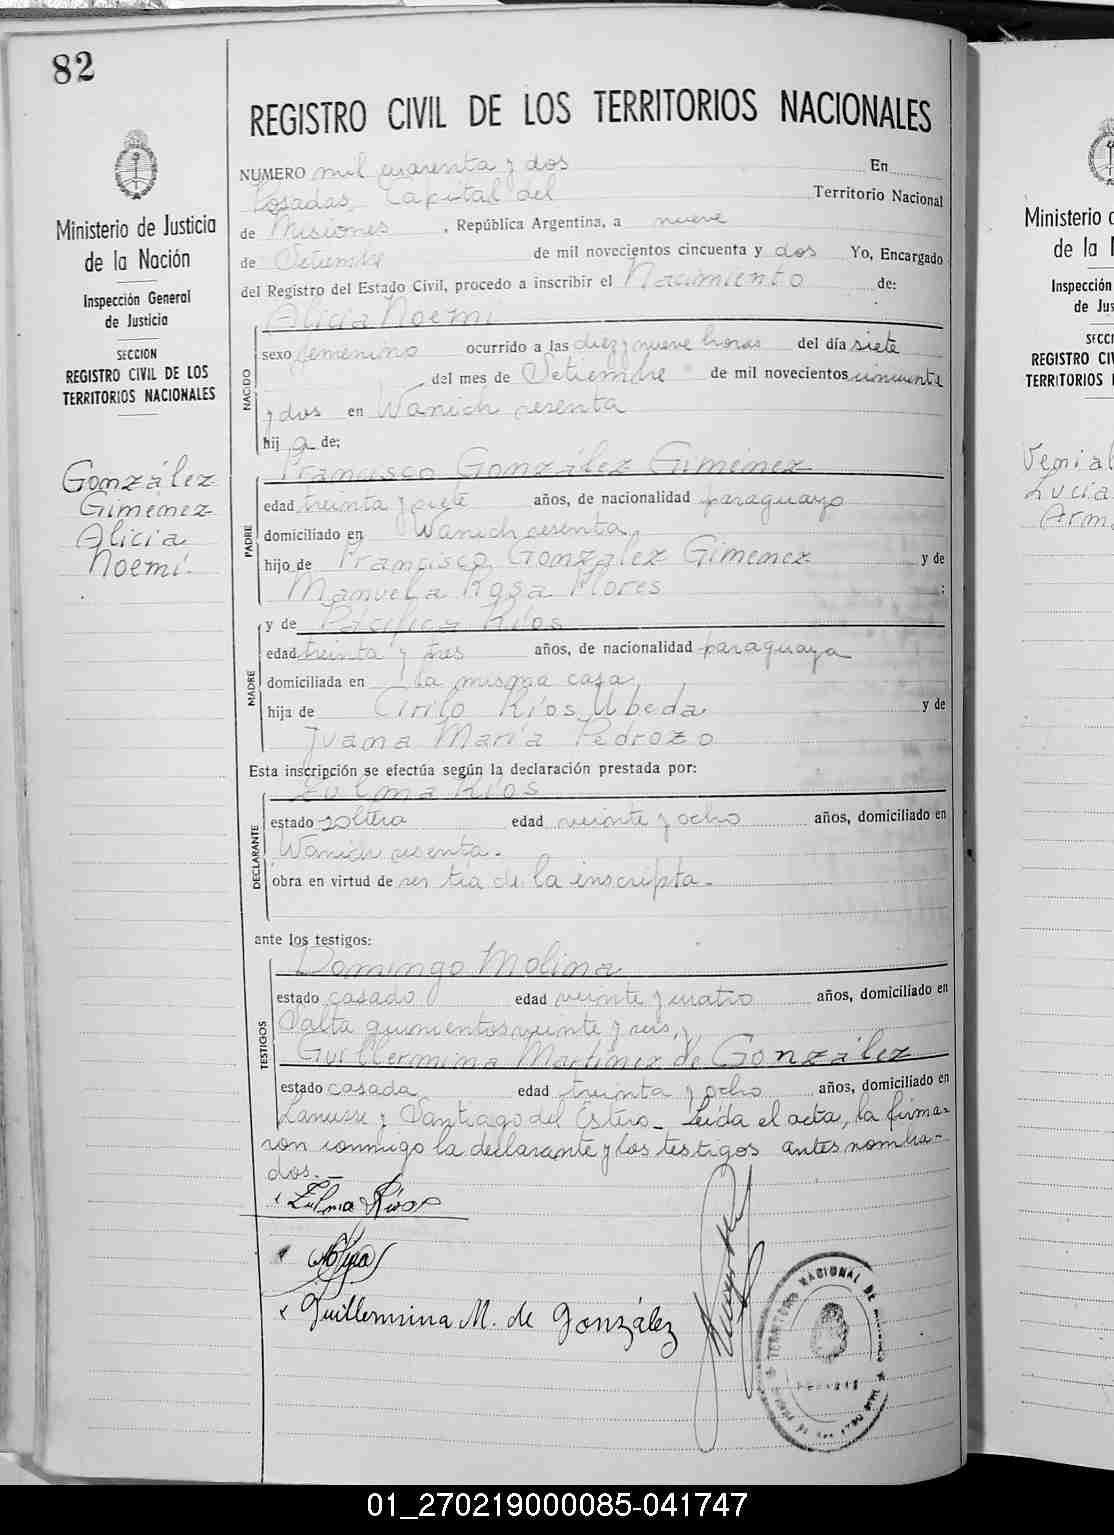 82
REGISTRO CIVIL DE LOS TERRITORIOS NACIONALES
Ministerio de Justicia
de la Nación
Inspección General
de Justicia
SECCION
REGISTRO CIVIL DE LOS
TERRITORIOS NACIONALES
González
Gimenez
Alicia
Noemí.
NUMERO mil cuarenta y dos En
Posadas, Capital del Territorio Nacional
de Misiones, República Argentina, a nueve
de Setiembre de mil novecientos cincuenta y dos Yo, Encargado
del Registro del Estado Civil, procedo a inscribir el Nacimiento de:
NACIDO
Alicia Noemí
sexo femenino ocurrido a las diez y nueve horas del día siete
del mes de Setiembre de mil novecientos cincuenta
y dos en Wanich sesenta
hij a de:
PADRE
Francisco González Gimenez
edad treinta y siete años, de nacionalidad paraguayo
domiciliado en Wanich sesenta
hijo de Francisco González Gimenez y de
Manuela Rosa Flores ;
MADRE
y de Pacífica Ríos
edad treinta y tres años, de nacionalidad paraguaya
domiciliada en la misma casa,
hija de Cirilo Ríos Ubeda y de
Juana María Pedrozo
Esta inscripción se efectúa según la declaración prestada por:
DECLARANTE
Zulma Ríos
estado soltera edad veinte y ocho años, domiciliado en
Wanich sesenta.
obra en virtud de ser tía de la inscripta.
ante los testigos:
TESTIGOS
Domingo Molina
estado casado edad veinte y cuatro años, domiciliado en
Salta quinientos veinte y seis, y
Guillermina Martinez de González
estado casada edad treinta y ocho años, domiciliado en
Lanusse y Santiago del Estero. Leida el acta, la firma-
ron conmigo la declarante y los testigos antes nombra-
dos.
Zulma Ríos
Guillermina M. de González
TERRITORIO NACIONAL DE
Ministerio
de la
Inspección
de Jus
SECCI
REGISTRO CIV
TERRITORIOS
Lucia
01_270219000085-041747